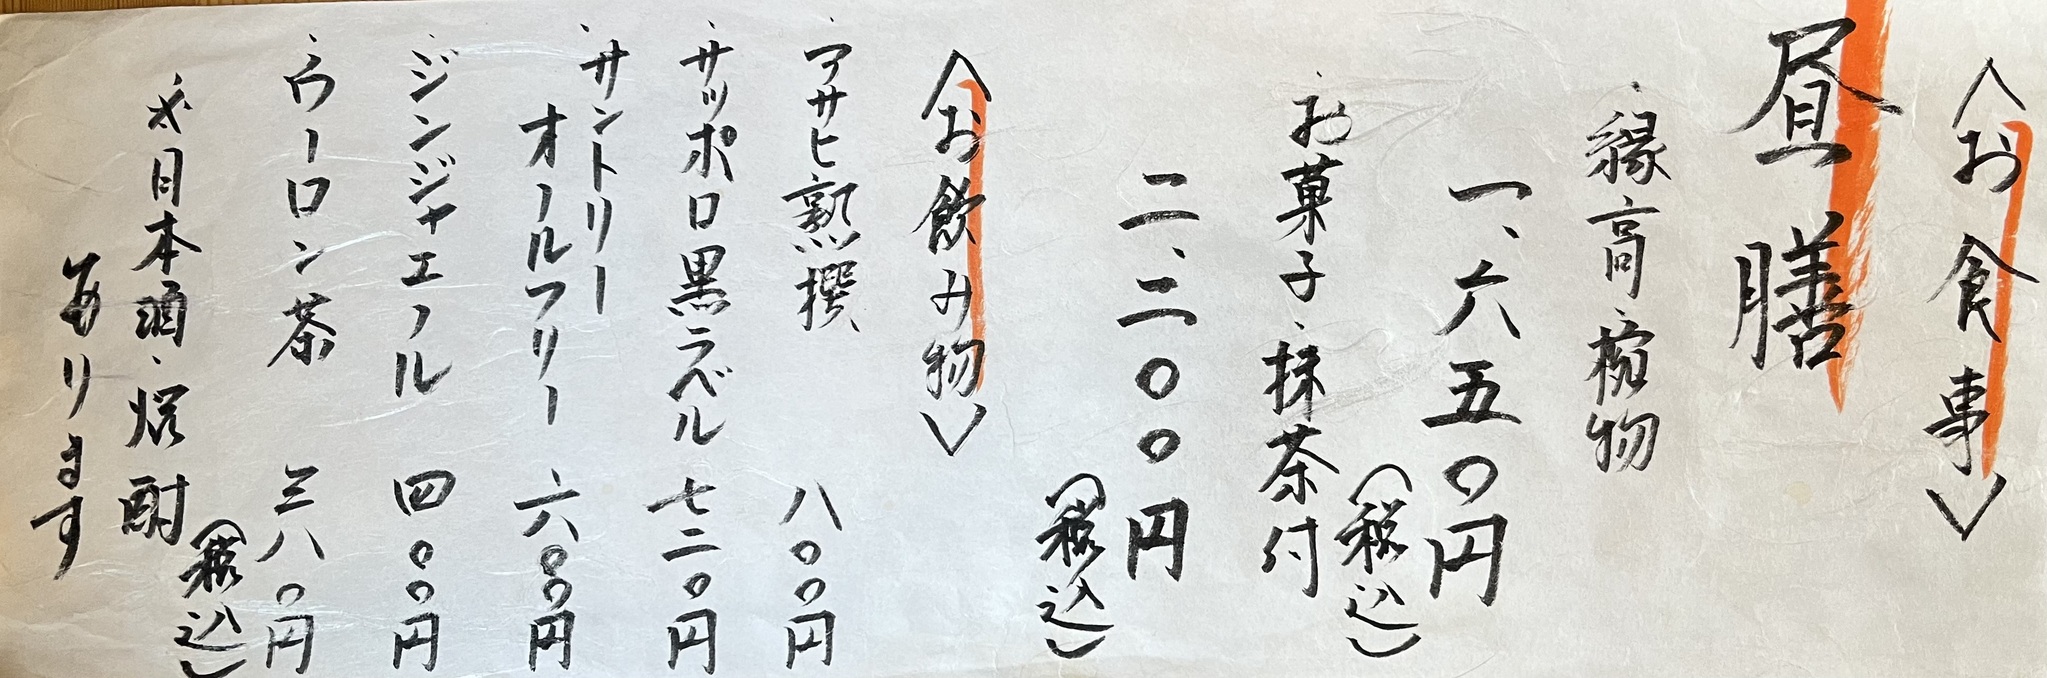 〈お食事〉
昼膳
・縁高・椀物
一、六五〇円
(税込)
・お菓子・抹茶付
二、二〇〇円
(税込)
〈お飲み物〉
・アサヒ熟撰 八〇〇円
・サッポロ黒ラベル 七二〇円
・サントリー
オールフリー 六〇〇円
・ジンジャエール 四〇〇円
・ウーロン茶 三八〇円
(税込)
・日本酒・焼酎
あります